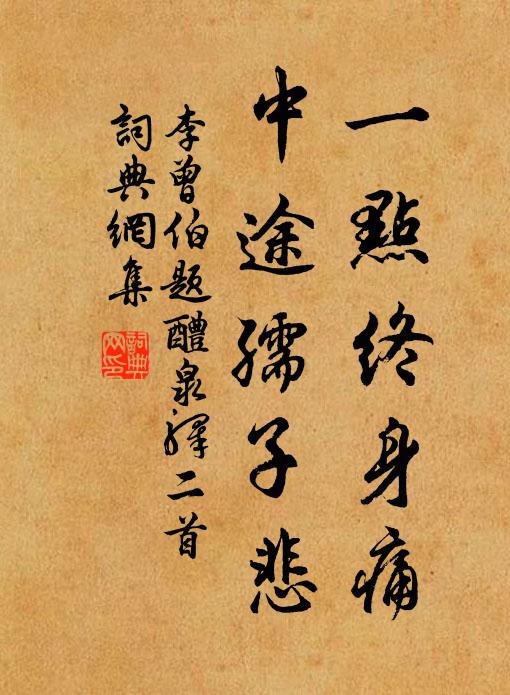 一點終身痛
中途孺子悲
李曾伯題醴泉驛二首
詞典網集
詞典网印